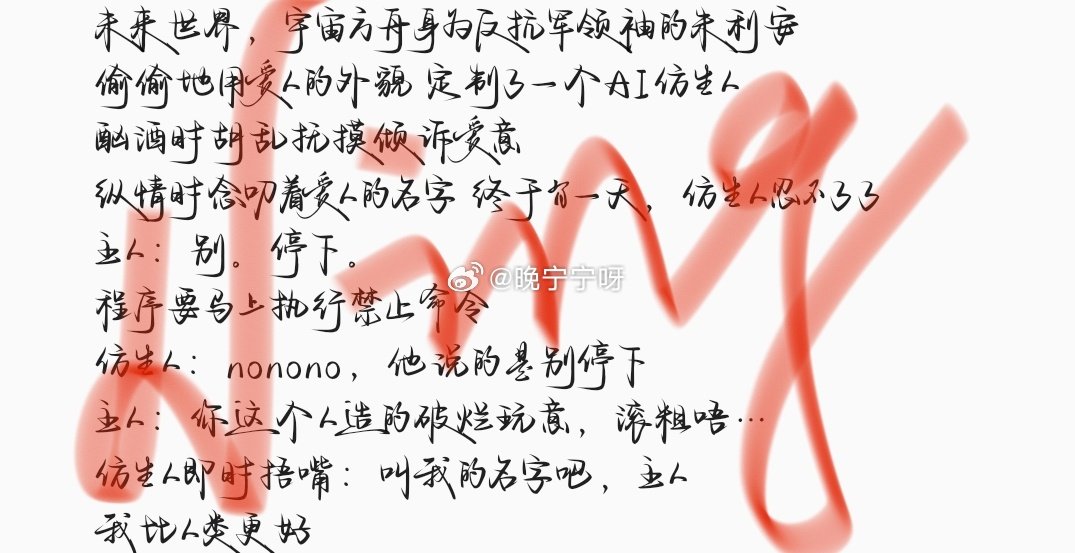 未来世界，宇宙方舟身为反抗军领袖的朱利安
偷偷地用爱人的外貌 定制了一个AI仿生人
酗酒时胡乱抚摸倾诉爱意
纵情时念叨着爱人的名字 终于有一天，仿生人忍不了了
主人：别。停下。
程序要马上执行禁止命令
仿生人：nonono，他说的是别停下
主人：你这个人造的破烂玩意，滚粗唔…
仿生人即时捂嘴：叫我的名字吧，主人
我比人类更好
@晚宁宁呀